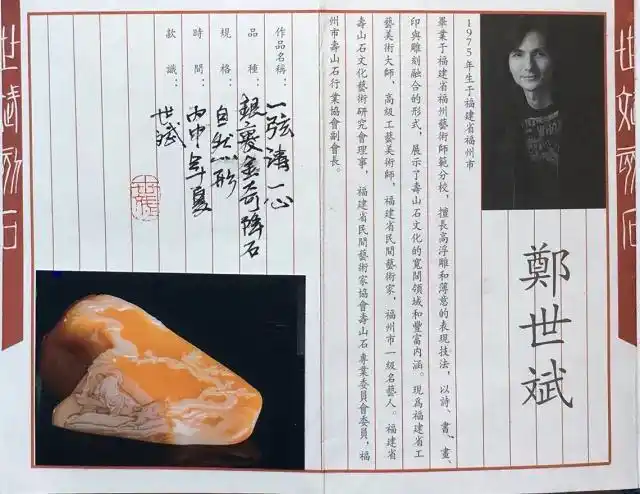 世斌刻石
鄭世斌
1975年生于福建省福州市
畢業于福建省福州藝術師範分校，擅長高浮雕和薄意的表現技法，以詩、書、畫、
印與雕刻融合的形式，展示了壽山石文化的寬闊領域和豐富内涵。現爲福建省工
藝美術大師，高級工藝美術師，福建省民間藝術家，福州市一級名藝人。福建省
壽山石文化藝術研究會理事，福建省民間藝術家協會壽山石專業委員會委員，福
州市壽山石行業協會副會長。
作品名稱：一弦清一心
品種：銀裹金奇降石
規格：自然形
時間：丙申年夏
款識：世斌
世斌刻石